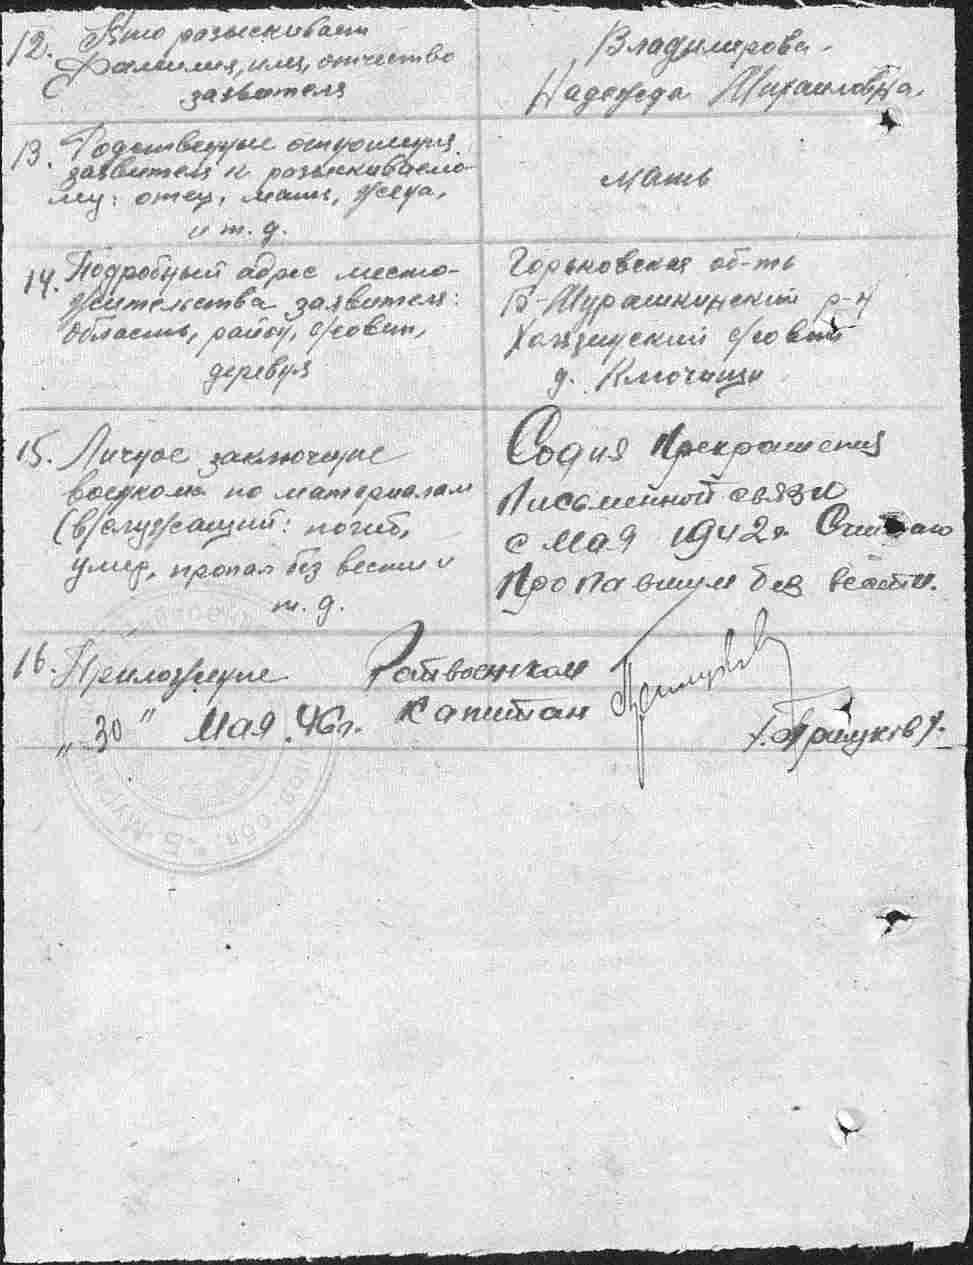 12. Кто разыскивает
Фамилия, имя, отчество
заявителя
Владимирова
Надежда Михайловна.
13. Родственные отношения
заявителя к разыскиваемо-
му: отец, мать, жена,
и т. д.
мать
14. Подробный адрес место-
жительства заявителя:
область, район, совет,
деревня
Горьковская об-ть
Б-Мурашкинский р-н
совет
д. Ключищи
15. Личное заключение
военкома по материалам
(в)служащий: погиб,
умер, пропал без вести и
т. д.
Прекращения
Письменной связи
с Мая 1942г Считаю
Пропавшим без вести.
16. Приложение
Райвоенком
"30" Мая 46г.
Капитан